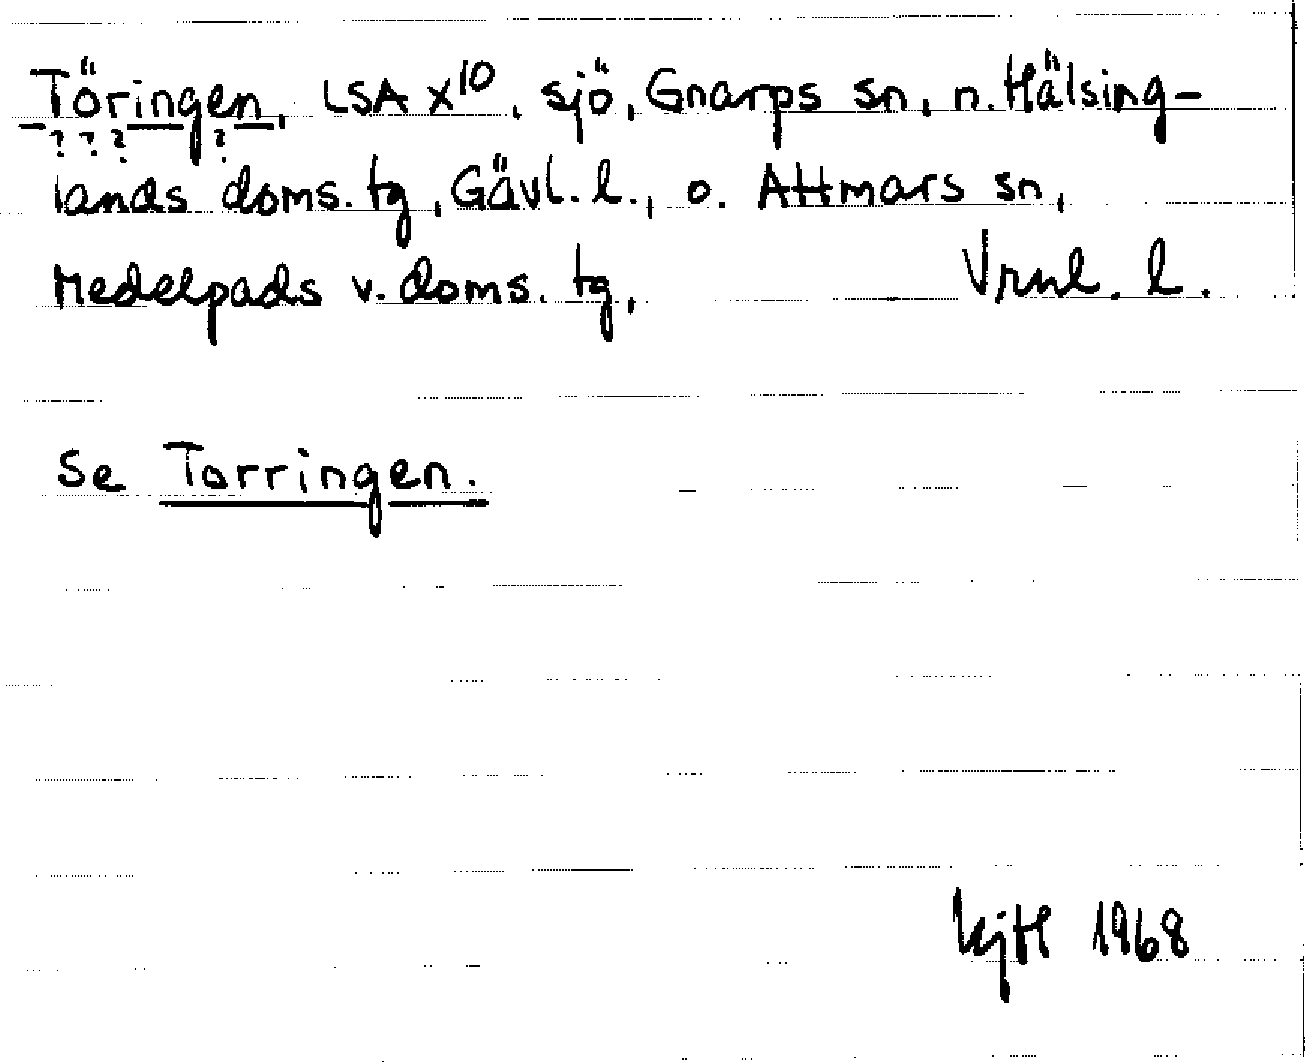 Töringen, LSA X10, sjö, Gnarps sn, n. Hälsing-
? ? ? ?
lands doms. tg, Gävl. l., o. Attmars sn,
Medelpads v. doms. tg, Vrnl. l.
Se Torringen.
1968